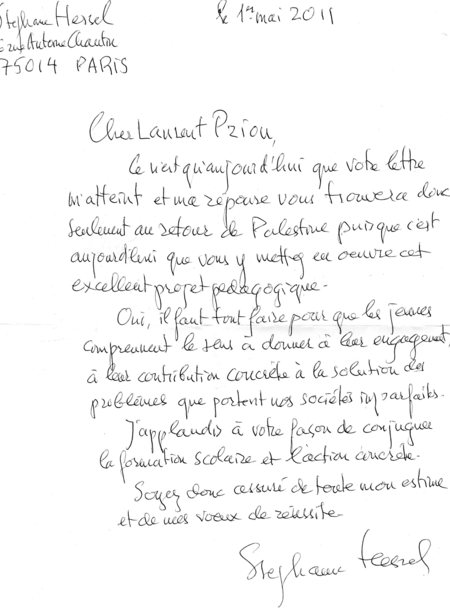 Stéphane Hessel
le 1er mai 2011
6 rue Antoine Chantin
75014 PARIS
Cher Laurent Priou,
Ce n'est qu'aujourd'hui que votre lettre
m'atteint et ma réponse vous trouvera donc
seulement au retour de Palestine puisque c'est
aujourd'hui que vous y mettez en oeuvre cet
excellent projet pédagogique.
Oui, il faut tout faire pour que les jeunes
comprennent le sens à donner à leur engagement,
à leur contribution concrète à la solution des
problèmes que portent nos sociétés imparfaites.
J'applaudis à votre façon de conjuguer
la formation scolaire et l'action concrète.
Soyez donc assuré de toute mon estime
et de mes voeux de réussite
Stéphane Hessel